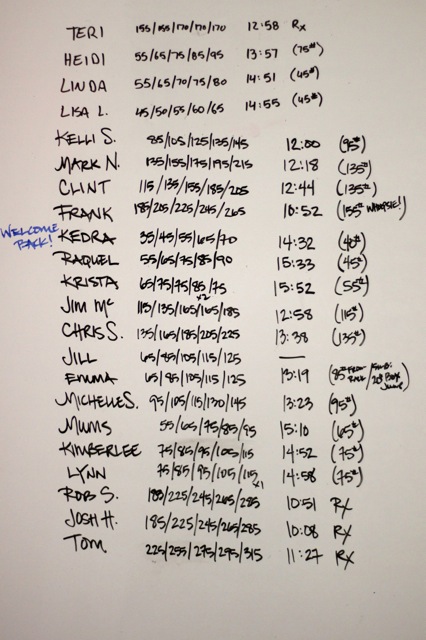 TERI 155/165/170/170/170 12:58 Rx
HEIDI 55/65/75/85/95 13:57 (75#)
LINDA 55/65/70/75/80 14:51 (45#)
LISA L. 45/50/55/60/65 14:55 (45#)
KELLI S. 85/105/125/135/145 12:00 (95#)
MARK N. 135/155/175/195/215 12:18 (135#)
CLINT 115/135/155/185/205 12:44 (135#)
FRANK 185/205/225/245/265 10:52 (155# WHOOPSIE!)
WELCOME BACK! KEDRA 35/45/55/65/70 14:32 (40#)
RAQUEL 55/65/75/85/90 15:33 (45#)
KRISTA 65/75/75/85/75 15:52 (55#)
x2
JIM MC 115/135/165/165/185 12:58 (115#)
CHRIS S. 135/165/185/205/225 13:38 (135#)
JILL 65/85/105/115/125 —
EMMA 65/85/105/115/125 13:19 (85# FRONT 20" BOX
MICHELLE S. 95/105/115/130/145 13:23 (95#)
MUMS 55/65/75/85/95 15:10 (65#)
KIMBERLEE 75/85/95/105/115 14:52 (75#)
LYNN 75/85/95/105/115 14:58 (75#)
x1
ROB S. 225/245/265/285 10:51 RX
JOSH H. 185/225/245/265/285 10:08 RX
TOM 225/255/275/295/315 11:27 RX